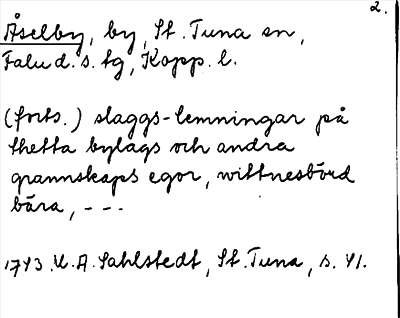 2.
Åselby, by, St. Tuna sn,
Falu d. s. tg, Kopp. l.
(forts.) slaggs-lemningar på
thetta bylags och andra
grannskaps egor, wittnesbörd
bära, - - -
1743. U. A. Sahlstedt, St. Tuna, s. 41.